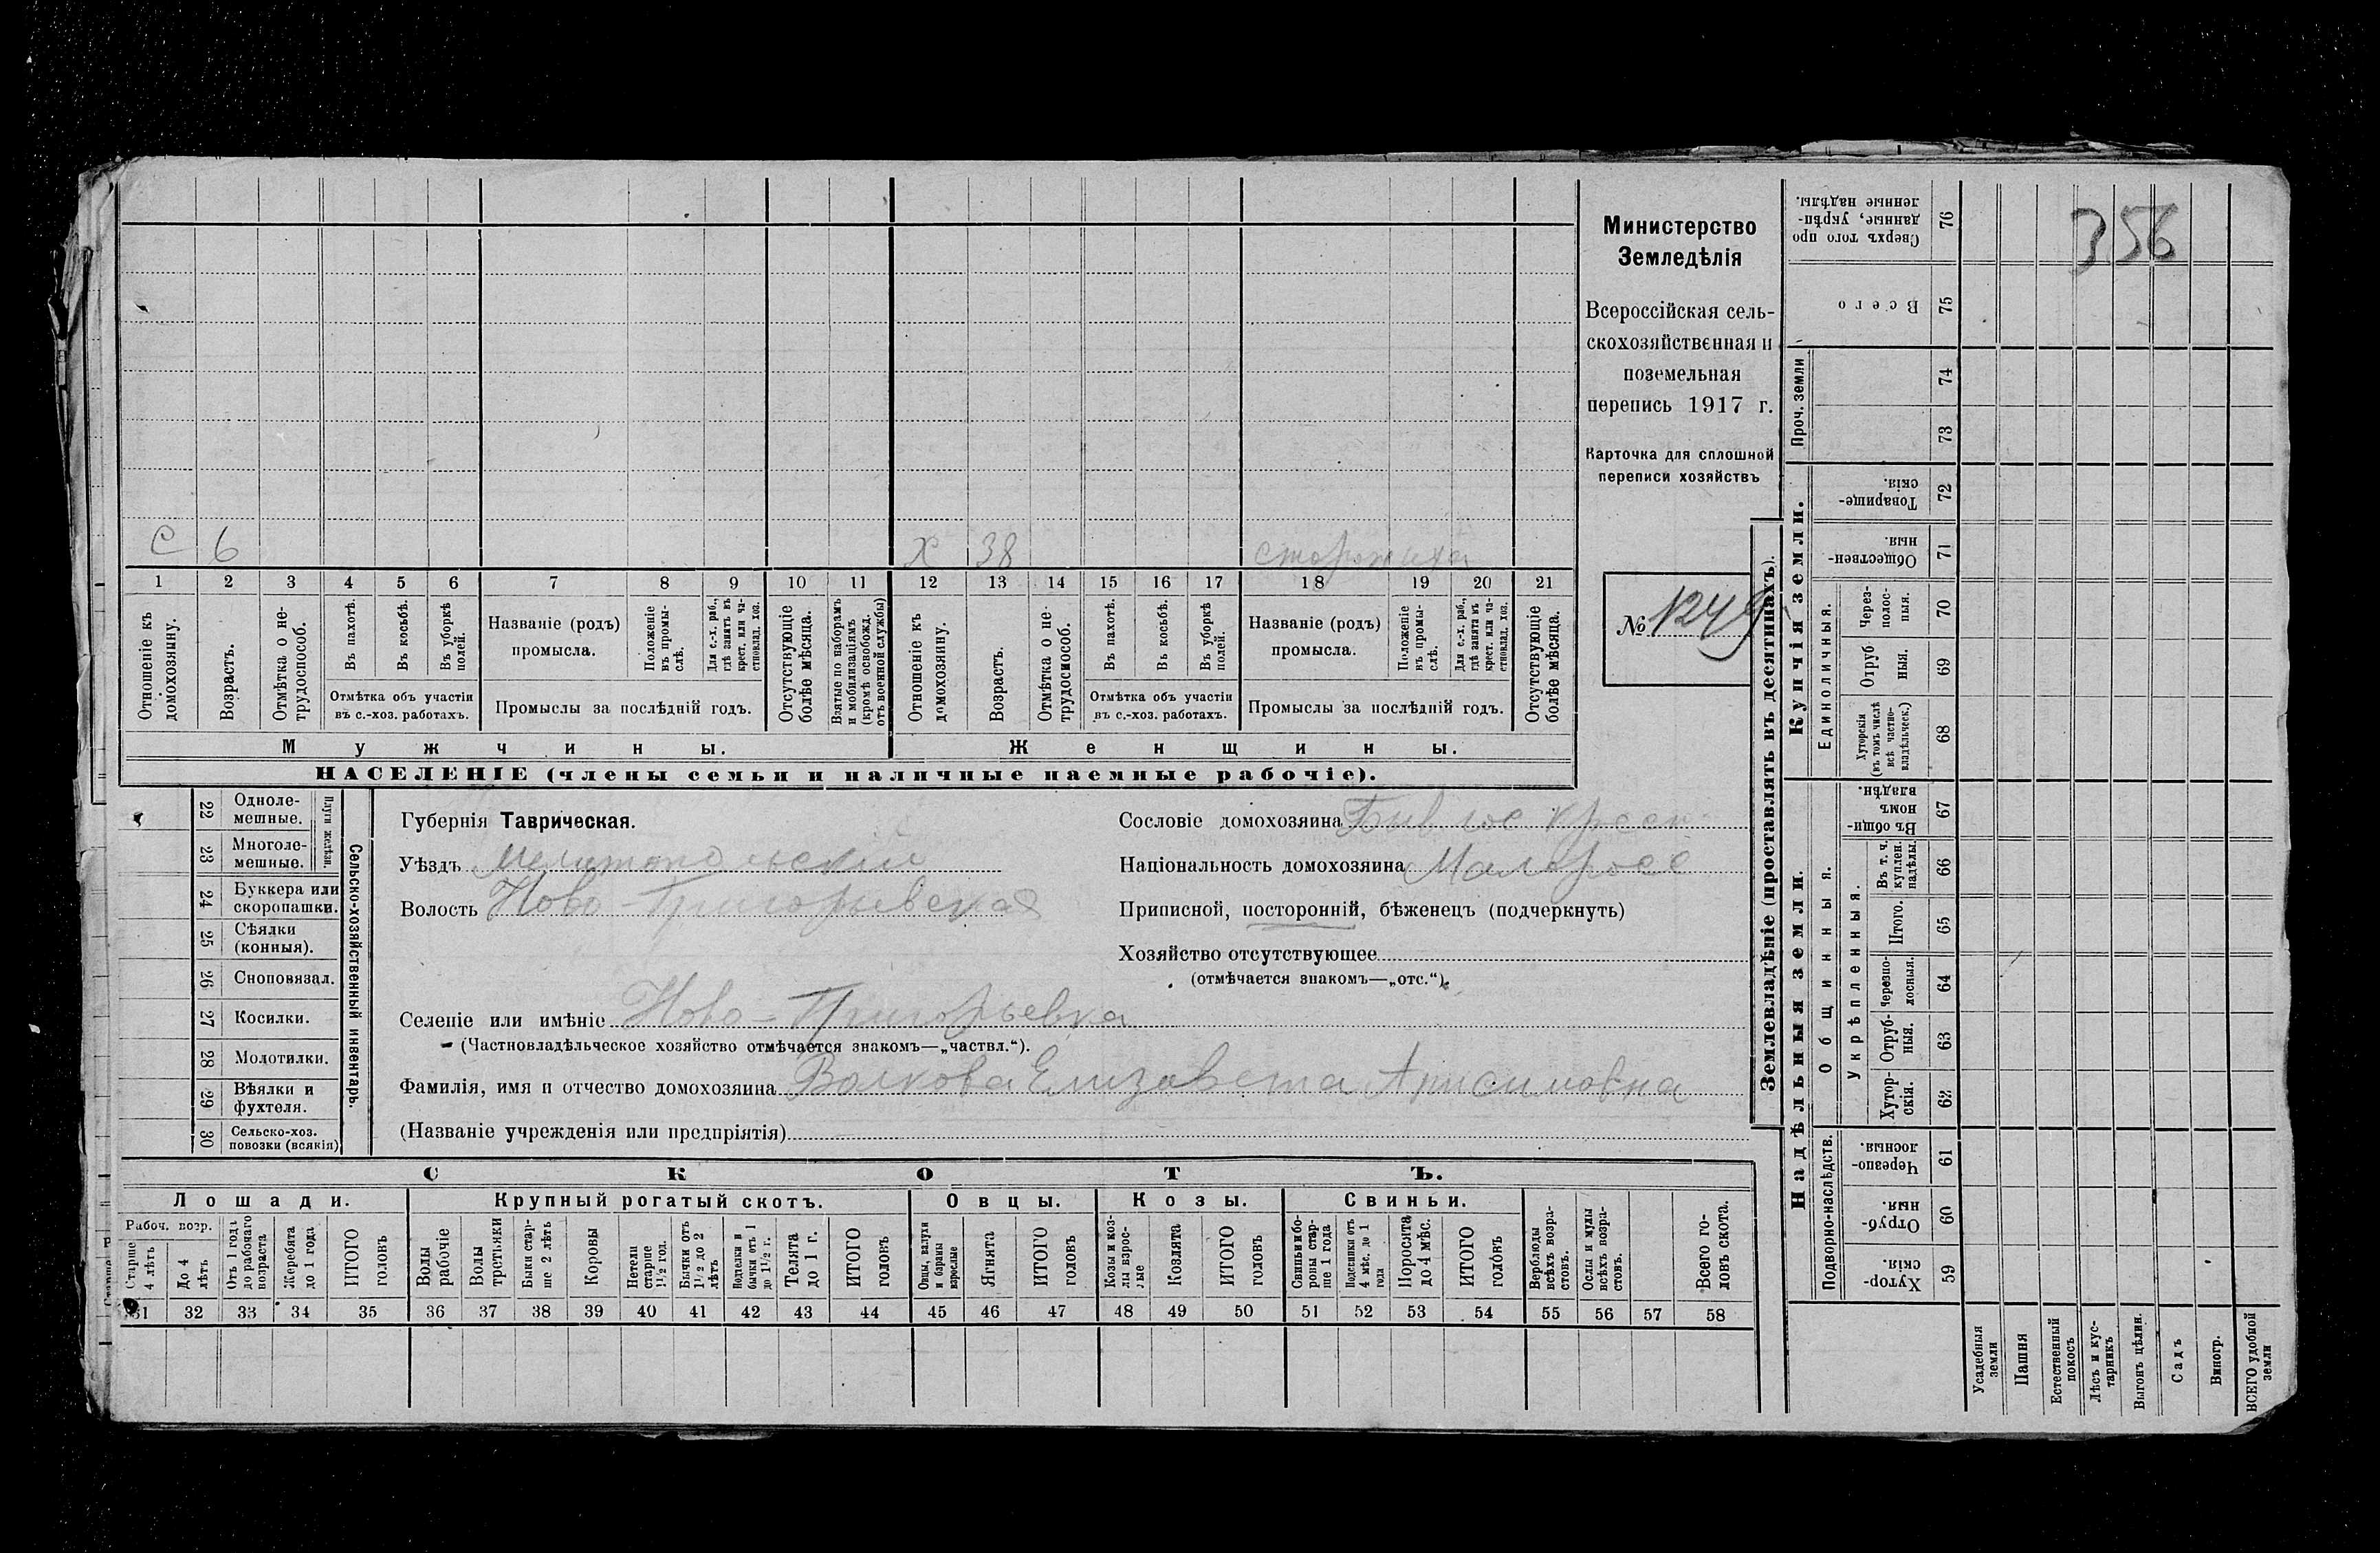 356
Министерство
Земледѣлія
Всероссійская сель-
скохозяйственная и
поземельная
перепись 1917 г.
Карточка для сплошной
переписи хозяйствъ
№ 1249
С 6 Х 38 сторожиха
1 2 3 4 5 6 7 8 9 10 11 12 13 14 15 16 17 18 19 20 21
Отношеніе къ домохозяину.
Возрастъ.
Отмѣтка о не-трудоспособ.
Въ пахотѣ.
Въ косьбѣ.
Въ уборкѣ полей.
Отмѣтка объ участіи
въ с.-хоз. работахъ.
Названіе (родъ)
промысла.
Положеніе въ промы-слѣ.
Для с.-х. раб., гдѣ занятъ въ крест. или ча-стновлад. хоз.
Промыслы за послѣдній годъ.
Отсутствующіе болѣе мѣсяца.
Взятые по наборамъ и мобилизаціямъ (кромѣ освобожд. отъ военной службы)
Отношеніе къ домохозяину.
Возрастъ.
Отмѣтка о не-трудоспособ.
Въ пахотѣ.
Въ косьбѣ.
Въ уборкѣ полей.
Отмѣтка объ участіи
въ с.-хоз. работахъ.
Названіе (родъ)
промысла.
Положеніе въ промы-слѣ.
Для с.-х. раб., гдѣ занята въ крест. или ча-стновлад. хоз.
Промыслы за послѣдній годъ.
Отсутствующіе болѣе мѣсяца.
Мужчины. Женщины.
НАСЕЛЕНІЕ (члены семьи и наличные наемные рабочіе).
Сельско-хозяйственный инвентарь.
Плуги желѣзн.
22 Одноле-
мешные.
23 Многоле-
мешные.
24 Буккера или
скоропашки.
25 Сѣялки
(конныя).
26 Сноповязал.
27 Косилки.
28 Молотилки.
29 Вѣялки и
фухтеля.
30 Сельско-хоз.
повозки (всякія)
Губернія Таврическая.
Уѣздъ Мелитопольскій
Волость Ново-Григорьевская
Сословіе домохозяина
Національность домохозяина Малоросс
Приписной, посторонній, бѣженецъ (подчеркнуть)
Хозяйство отсутствующее
(отмѣчается знакомъ—„отс.“).
Селеніе или имѣніе Ново-Григорьевка
(Частновладѣльческое хозяйство отмѣчается знакомъ—„частвл.“).
Фамилія, имя и отчество домохозяина Волкова Елизавета
(Названіе учрежденія или предпріятія)
СКОТЪ.
Лошади. Крупный рогатый скотъ. Овцы. Козы. Свиньи.
Рабоч. возр.
Старше 4 лѣтъ
До 4 лѣтъ
Отъ 1 года до рабочаго возраста
Жеребята до 1 года
ИТОГО головъ
Волы рабочіе
Волы третьяки
Быки стар-ше 2 лѣтъ
Коровы
Нетели старше 1½ год.
Бычки отъ 1½ до 2 лѣтъ
Подтелки и бычки отъ 1 до 1½ г.
Телята до 1 г.
ИТОГО головъ
Овцы, валухи и бараны взрослые
Ягнята
ИТОГО головъ
Козы и коз-лы взрос-лые
Козлята
ИТОГО головъ
Свиньи и бо-ровы стар-ше 1 года
Подсвинки отъ 4 мѣс. до 1 года
Поросята до 4 мѣс.
ИТОГО головъ
Верблюды всѣхъ возра-стовъ.
Ослы и мулы всѣхъ возра-стовъ.
Всего го-ловъ скота.
31 32 33 34 35 36 37 38 39 40 41 42 43 44 45 46 47 48 49 50 51 52 53 54 55 56 57 58
Землевладѣніе (проставлять въ десятинахъ).
Сверхъ того про данные, укрѣп-ленные надѣлы. 76
Всего 75
Проч. земли 74
73
Купчія земли.
Товарище-скія. 72
Обществен-ныя. 71
Единоличныя.
Через-полос-ныя. 70
Отруб ныя. 69
Хуторскія (въ томъ числѣ всѣ частно-владѣльческ.) 68
Надѣльныя земли.
Общинныя.
Въ общи-номъ владѣн. 67
Укрѣпленныя.
Въ т. ч. куплен. надѣлы. 66
Итого. 65
Черезпо-лосныя. 64
Отруб-ныя. 63
Хутор-скія. 62
Подворно-наслѣдств.
Черезпо-лосныя. 61
Отруб-ныя. 60
Хутор-скія. 59
Усадебныя земли
Пашня
Естественный покосъ
Лѣсъ и кус-тарникъ
Выгонъ цѣлин.
Садъ
Виногр.
ВСЕГО удобной земли